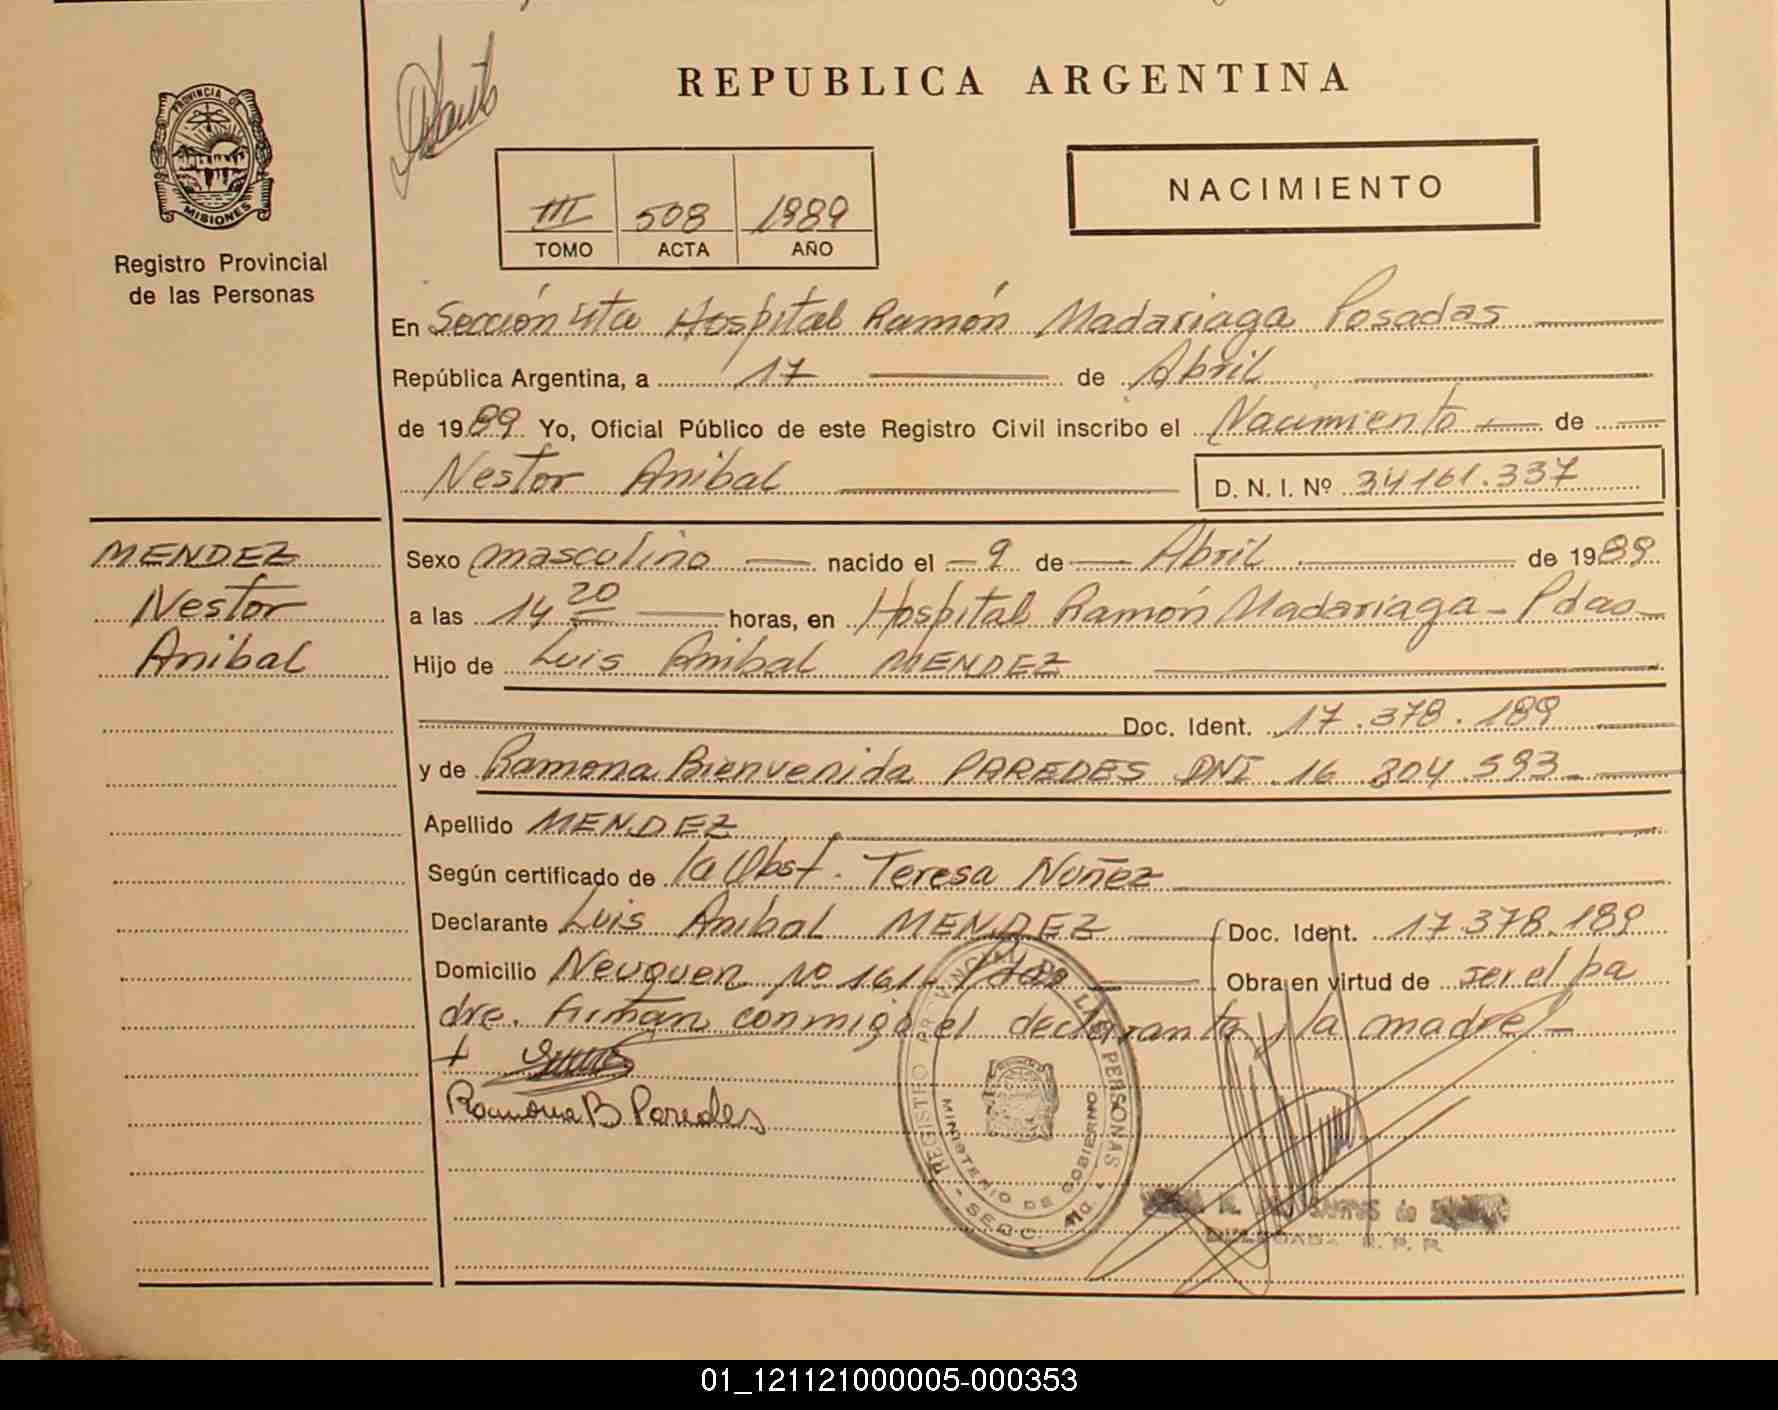 REPUBLICA ARGENTINA
PROVINCIA DE
MISIONES
Registro Provincial
de las Personas
NACIMIENTO
III 508 1989
TOMO ACTA AÑO
En Sección 4ta Hospital Ramón Madariaga Posadas
República Argentina, a 17 de Abril
de 1989 Yo, Oficial Público de este Registro Civil inscribo el Nacimiento de
Nestor Anibal D. N. I. Nº 34161.337
MENDEZ
Nestor
Anibal
Sexo masculino nacido el 9 de Abril de 1989
a las 14 20 horas, en Hospital Ramón Madariaga - Pdas
Hijo de Luis Anibal MENDEZ
Doc. Ident. 17.378.189
y de Ramona Bienvenida PAREDES DNI. 16 804 593
Apellido MENDEZ
Según certificado de la Obst. Teresa Nuñez
Declarante Luis Anibal MENDEZ Doc. Ident. 17.378.189
Domicilio Neuquen Nº 161 - Pdas Obra en virtud de ser el pa
dre. Firman conmigo el declarante y la madre -
Ramona B Paredes
REGISTRO PROVINCIAL DE LAS PERSONAS
MINISTERIO DE GOBIERNO
SECC. 4ta.
DELEGADA R. P. P.
01_121121000005-000353